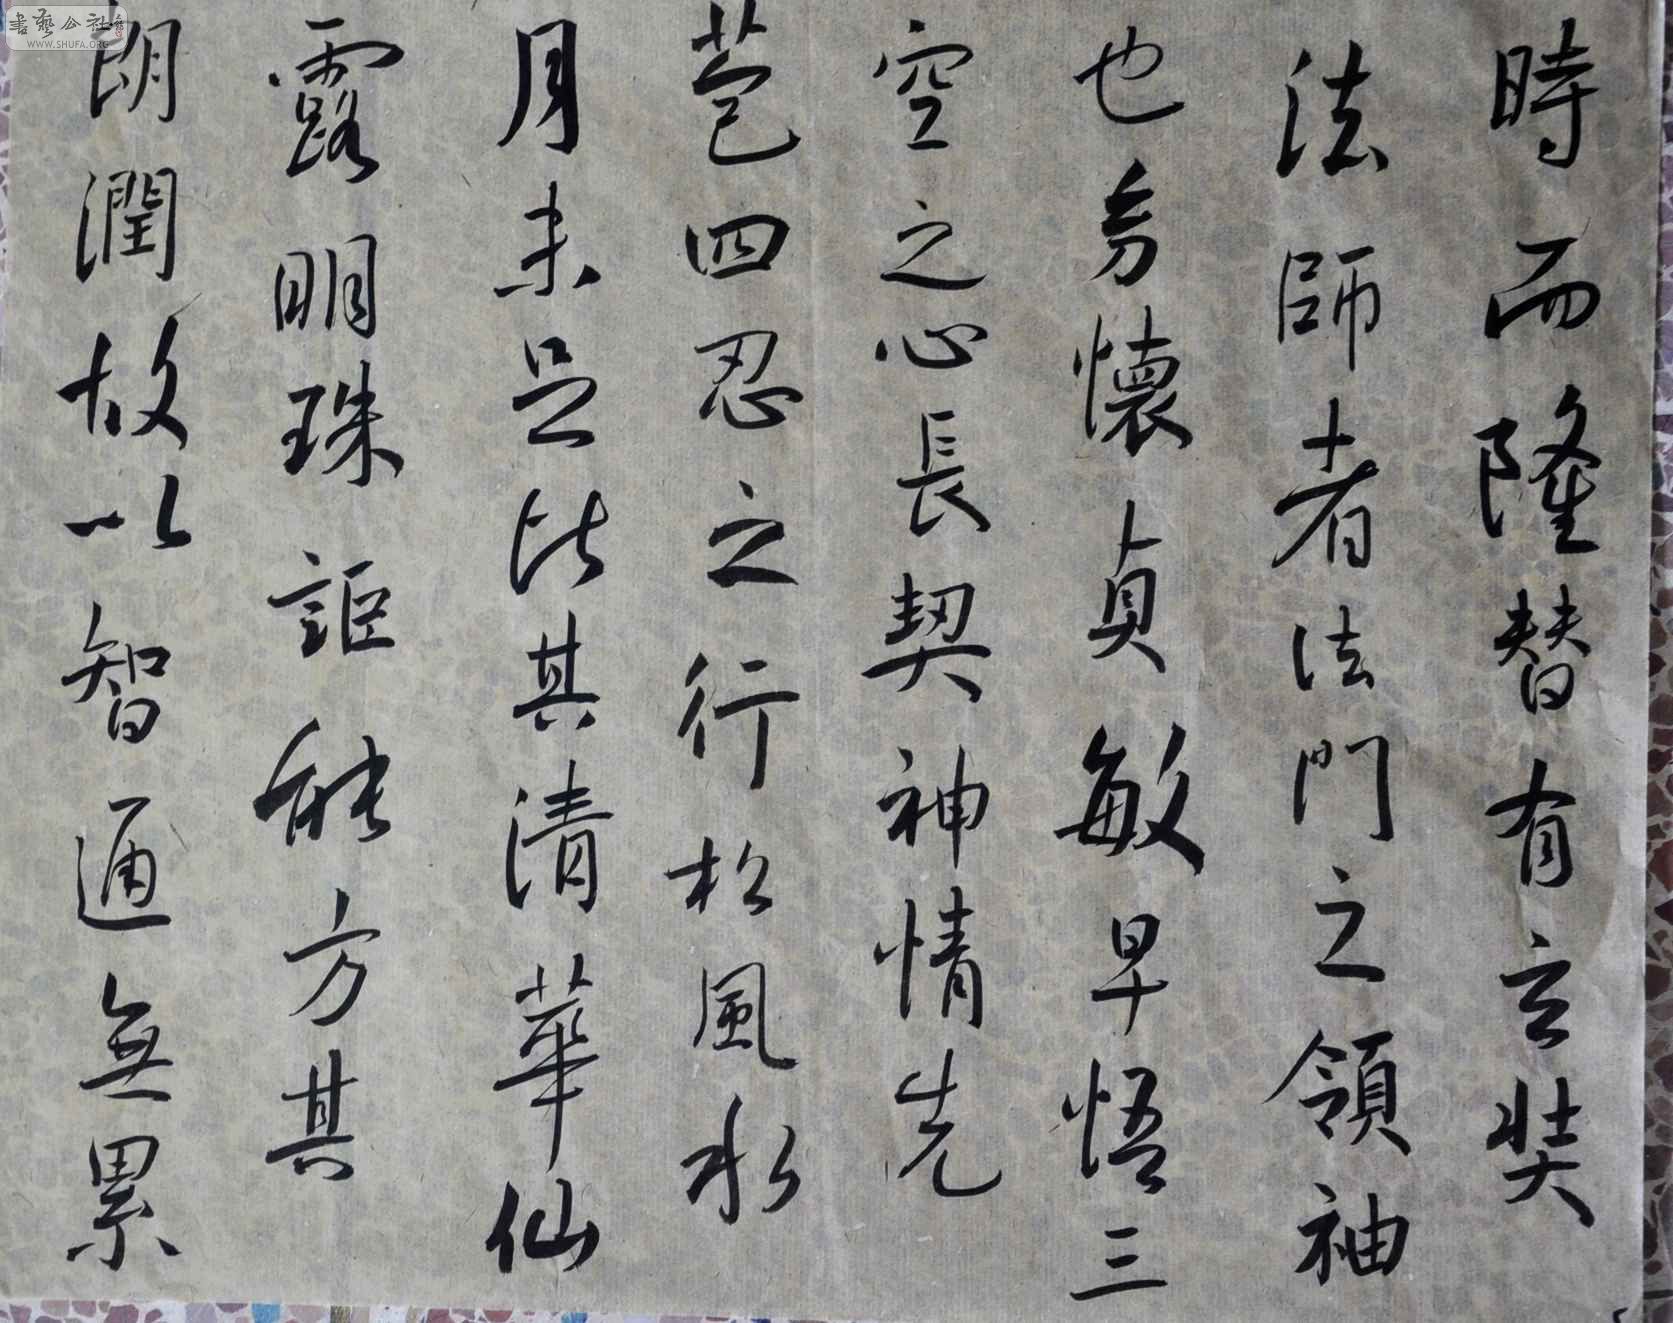 時而隆替有玄奘
法師者法門之領袖
也幼懷貞敏早悟三
空之心長契神情先
苞四忍之行松風水
月未足比其清華仙
露明珠詎能方其
朗潤故以智通無累
書藝公社
WWW.SHUFA.ORG